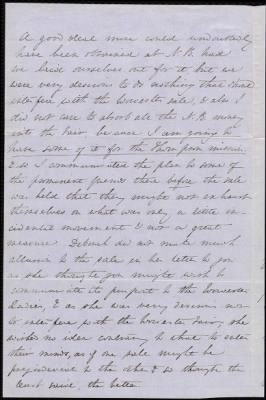 A good deal more could undoubtedly
have been obtained at N.B. had
we laid ourselves out for it but we
were very desirous to do nothing that should
interfere with the Worcester sale, & also I
did not care to absorb all the N.B. money
into the Fair, because I am going to
have some of it for the Thompson mission.
& so I communicated the plan to some of
the prominent friends there before the sale
was held that they might not exhaust
themselves on what was only a little in-
cidental movement & not a great
measure. Deborah did not make much
allusion to the sale in her letter to you
as she thought you might wish to
communicate its purport to the Worcester
Ladies, & as she was very desirous not
to interfere with the Worcester Fair, she
wished no idea contrary to that to enter
their minds, as if one sale might be
prejudicial to the other & so though the
least said, the better